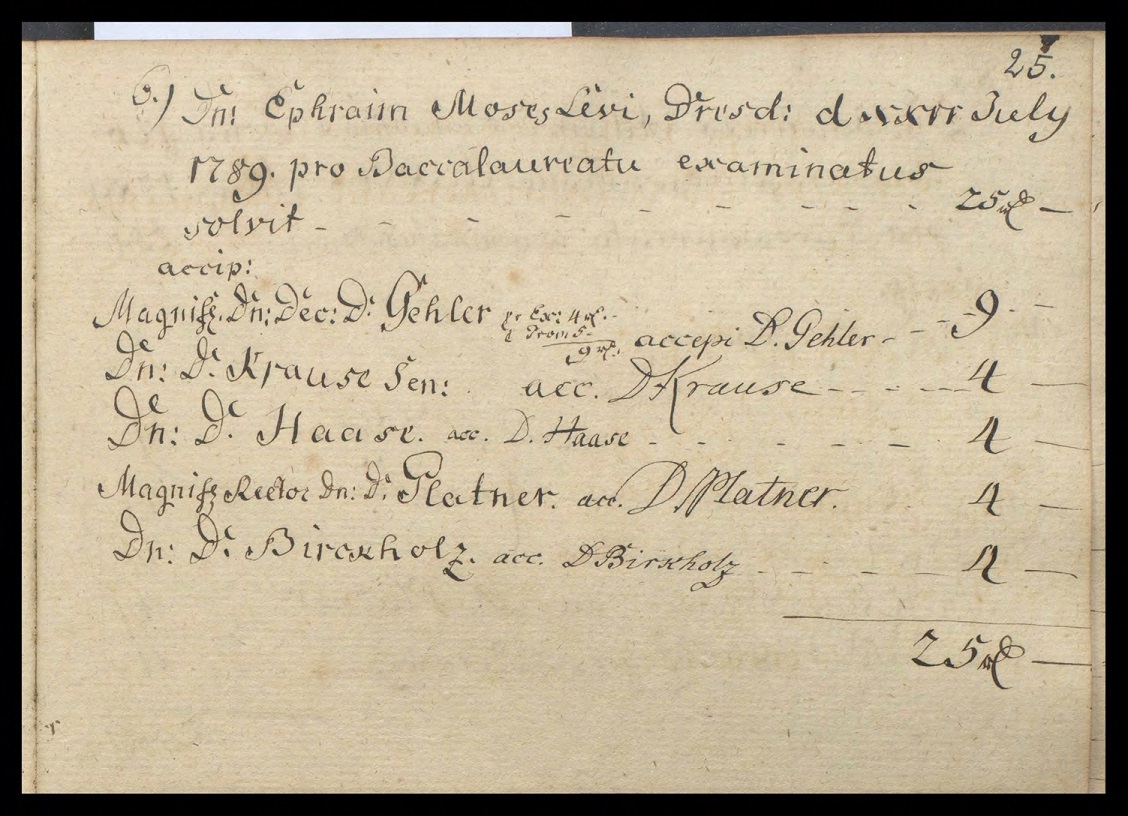 25.
6.) Dn: Ephraim Moses Levi, Dresd: d xxii July
1789. pro Baccalaureatu examinatus
solvit - - - - - - - - 25 rl —
accip:
Magnif. Dn: Dec: D. Gehler pr Ex: 4 rl. - accepi D. Gehler - - - 9 -
Prom 5 -
9 rl.
Dn: D. Krause Sen: acc. D Krause - - - - 4 —
Dn: D. Haase. acc. D. Haase - - - - - 4 —
Magnif. Rector Dn: D. Platner. acc. D. Platner. 4 —
Dn: D. Birckholz. acc. D Birkholz - - - - 4 —
25 rl —